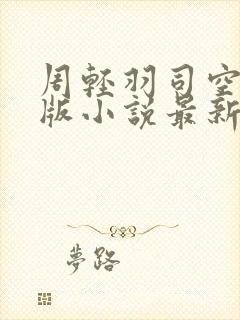 周輕羽司空
版小說最新
夢路